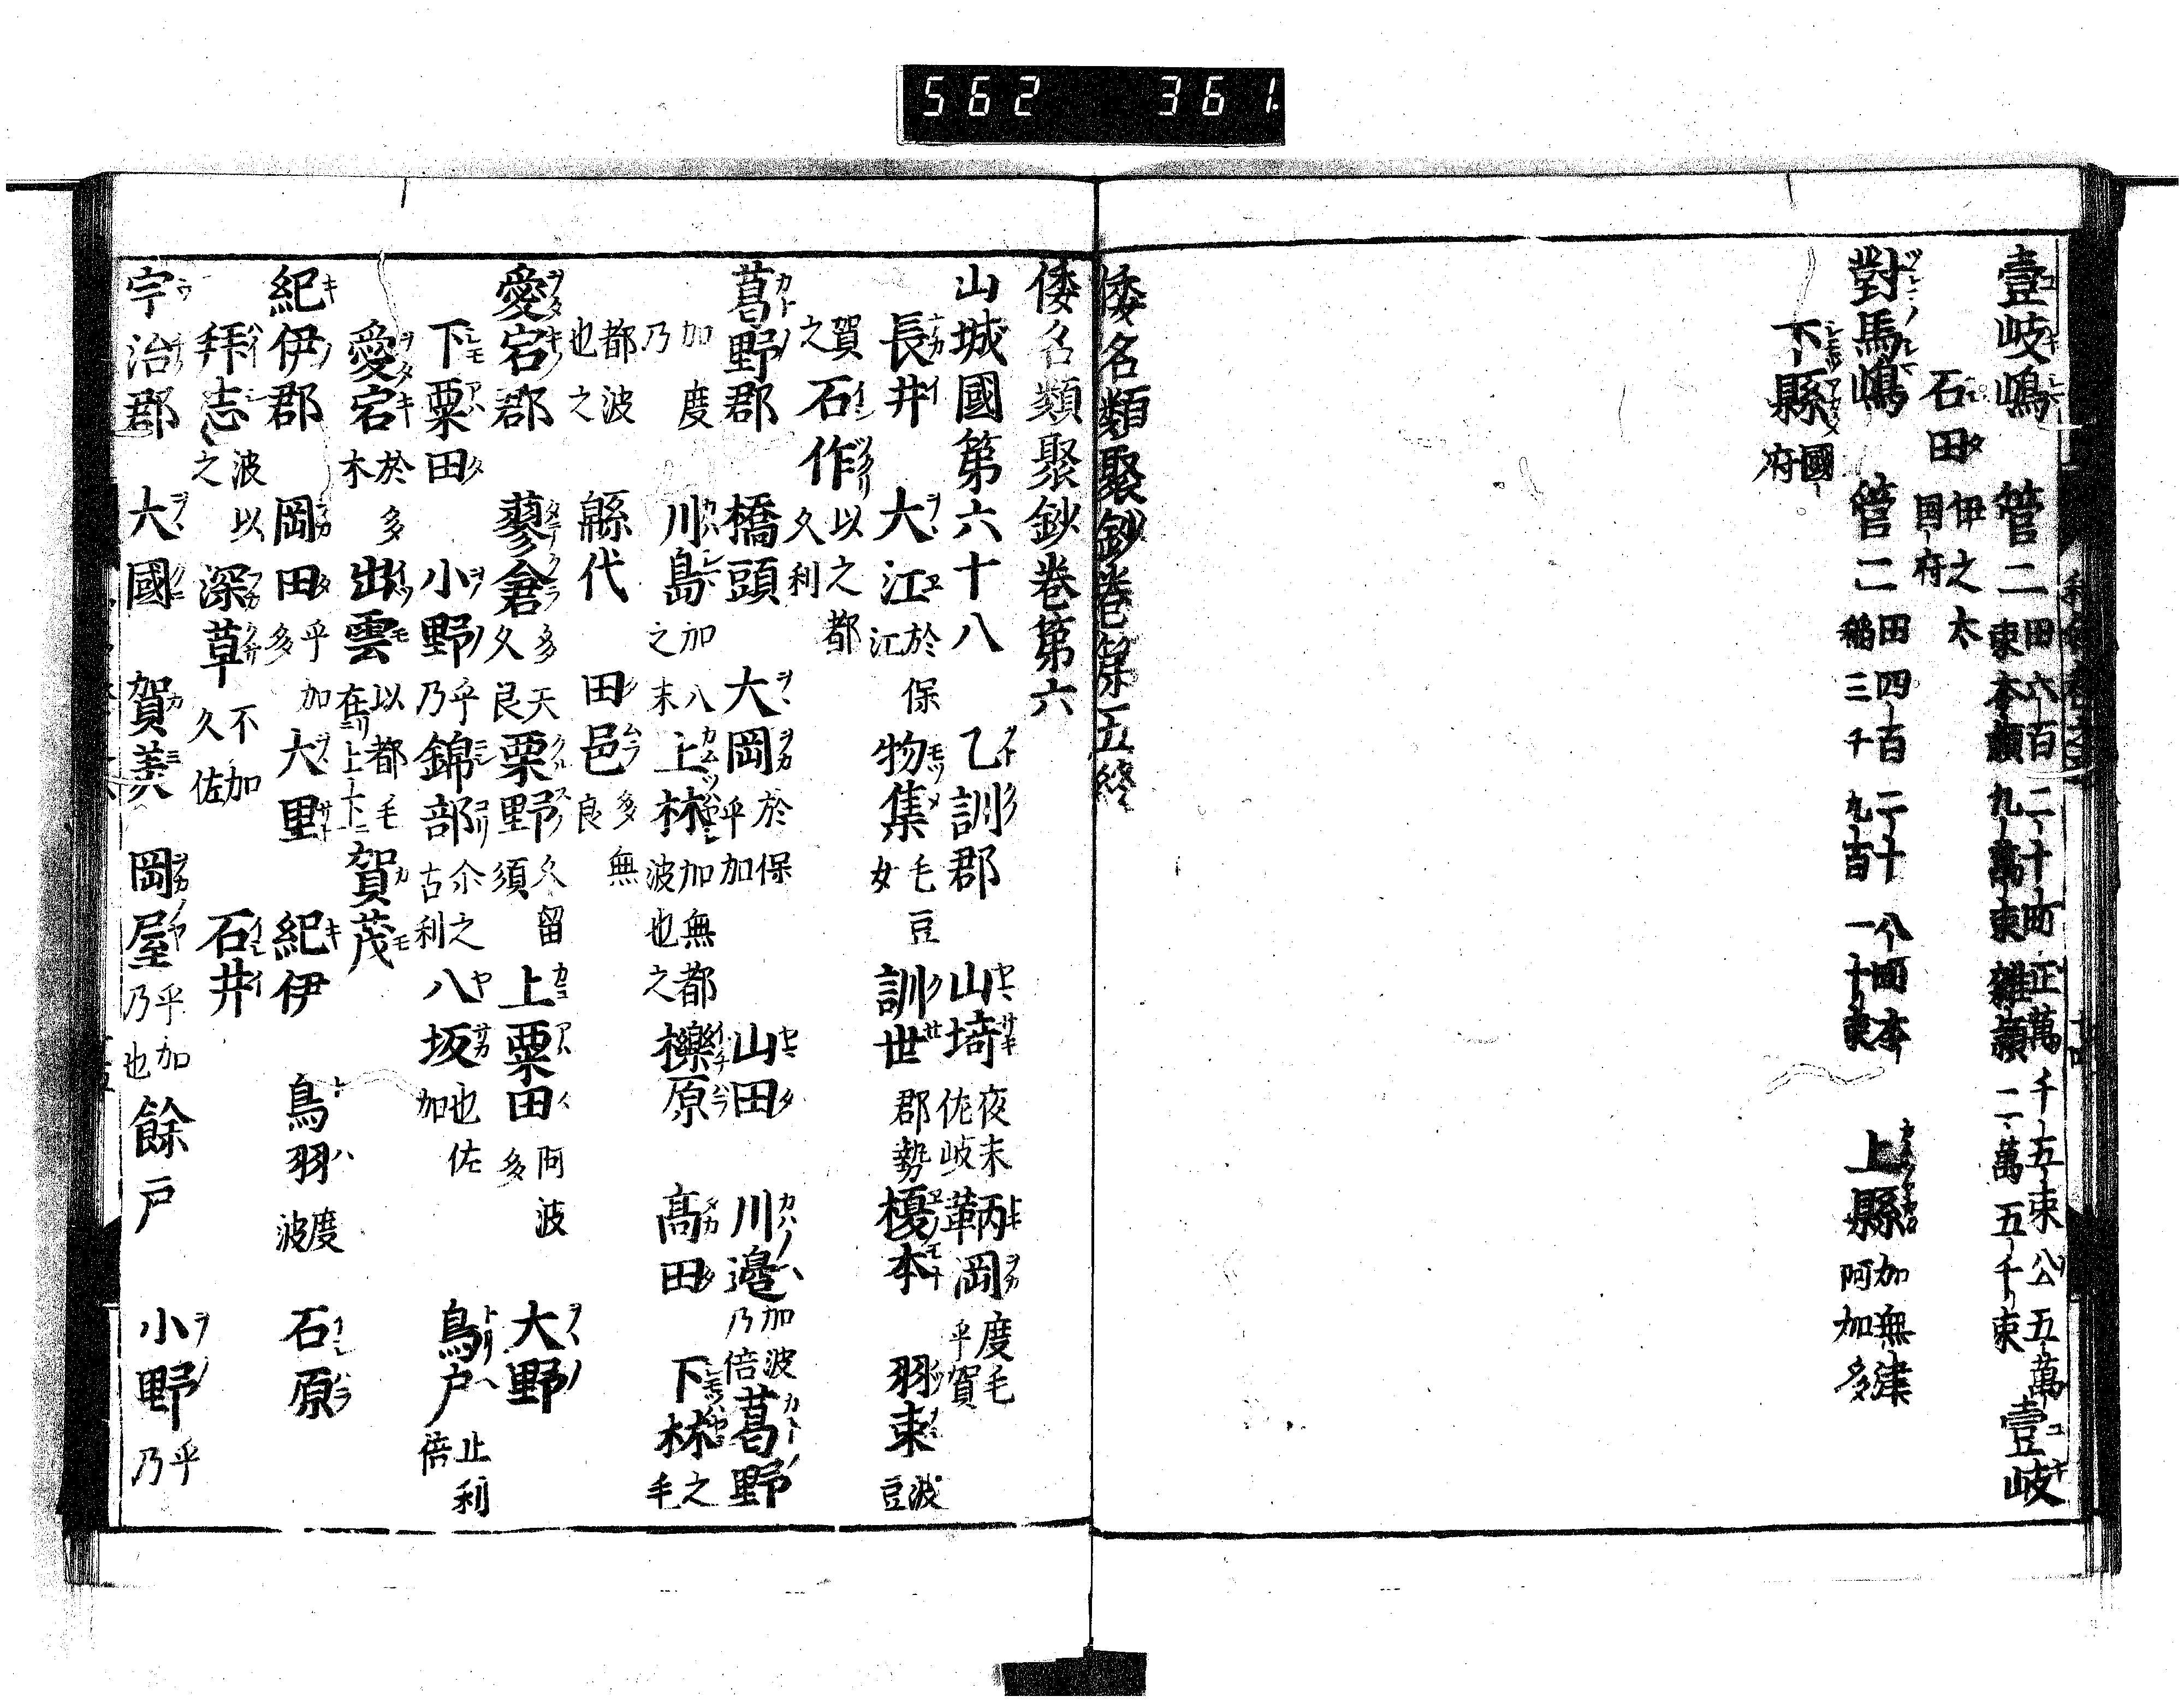 562 361.
壹岐嶋 管二 田六百二十町正萬千五束公五萬束本穎九萬束雜穎二萬五千束 壹岐
石田 伊之太國府
對馬嶋 管二 田四百二十八町本穎三千九百一十束 上縣 加無津阿加多
下縣 國府
倭名類聚鈔卷第五終
倭名類聚鈔卷第六
山城國第六十八 乙訓郡 山埼 夜末佐岐 鞆岡 度毛乎賀
長井 大江 於保江 物集 毛豆女 訓世 郡勢 榎本 羽束 波豆
賀之 石作 以之都久利
葛野郡 橋頭 大岡 於保乎加 山田 川邊 加波乃倍 葛野
加度乃 川島 加八之末 上林 加無都波也之 櫟原 高田 下林 之毛
都波也之 緜代 田邑 多無良
愛宕郡 蓼倉 多天久良 栗野 久留須 上粟田 阿波多 大野
下粟田 小野 乎乃 錦部 尒之古利 八坂 也佐加 鳥戸 止利倍
愛宕 於多木 出雲 以都毛在上下 賀茂
紀伊郡 岡田 乎加多 大里 紀伊 鳥羽 度波 石原
拜志 波以之 深草 不加久佐 石井
宇治郡 大國 賀美 岡屋 乎加乃也 餘戸 小野 乎乃